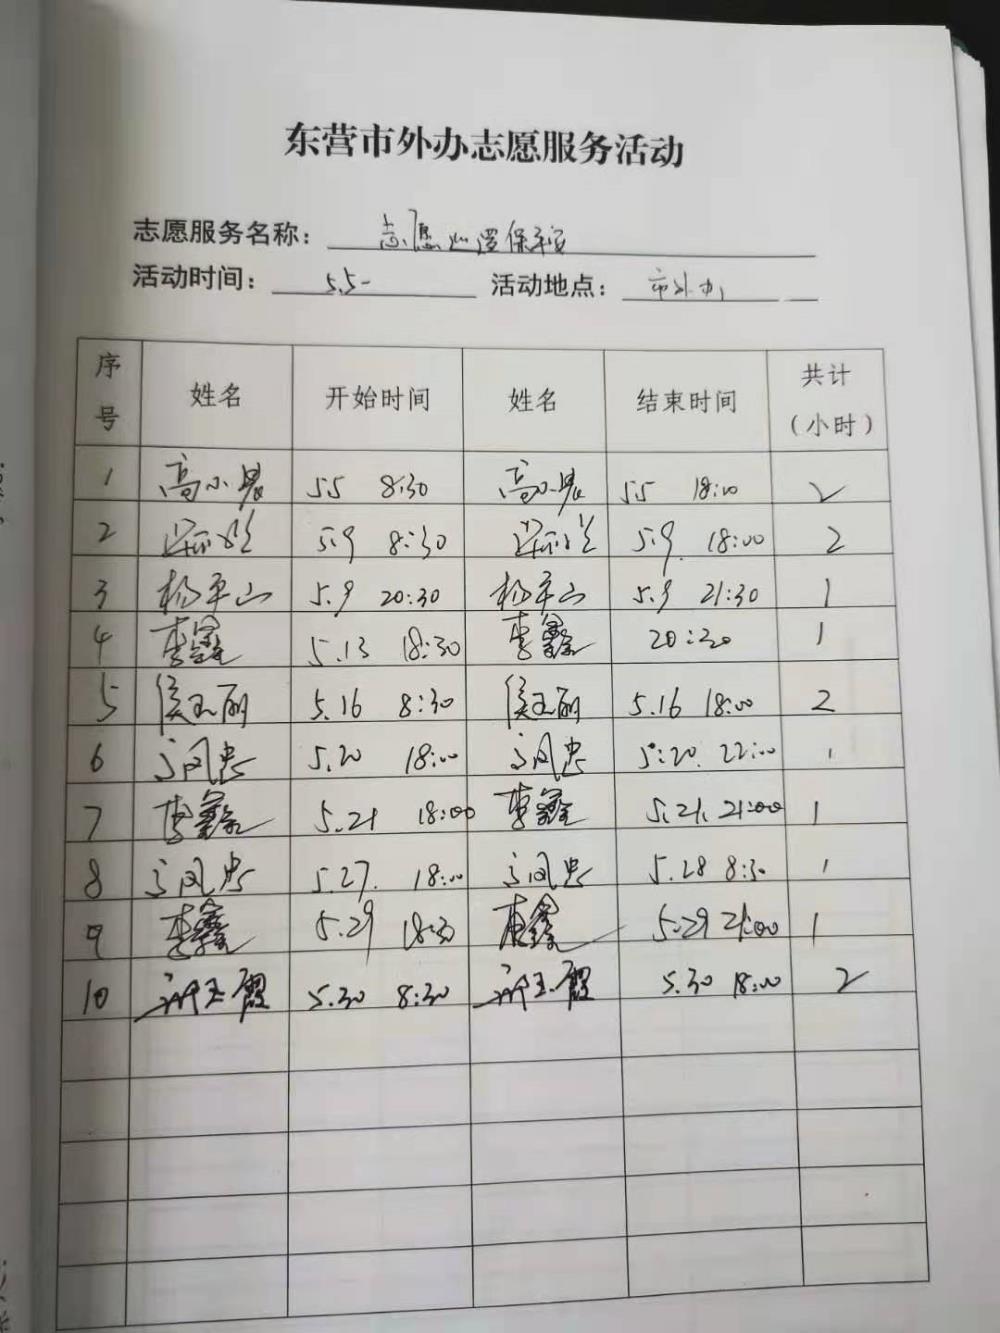 东营市外办志愿服务活动
志愿服务名称： 志愿巡逻保平安
活动时间： 5.5- 活动地点： 市外办
序号 姓名 开始时间 姓名 结束时间 共计（小时）
1 高小晃 5.5 8:30 高小晃 5.5 18:00 2
2 5.9 8:30 5.9. 18:00 2
3 杨平山 5.9 20:30 杨平山 5.9 21:30 1
4 李鑫 5.13 18:30 李鑫 20:30 1
5 侯玉丽 5.16 8:30 侯玉丽 5.16 18:00 2
6 5.20 18:00 5:20. 22:00 1
7 李鑫 5.21 18:00 李鑫 5.21. 21:00 1
8 5.27. 18:00 5.28 8:30 1
9 李鑫 5.29 18:30 李鑫 5.29 21:00 1
10 5.30 8:30 5.30 18:00 2